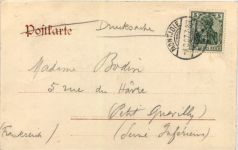 Drucksache
Postkarte
Madame Bodin
5 rue du Hâvre
Petit Quevilly
(Frankreich) (Seine Inférieure)